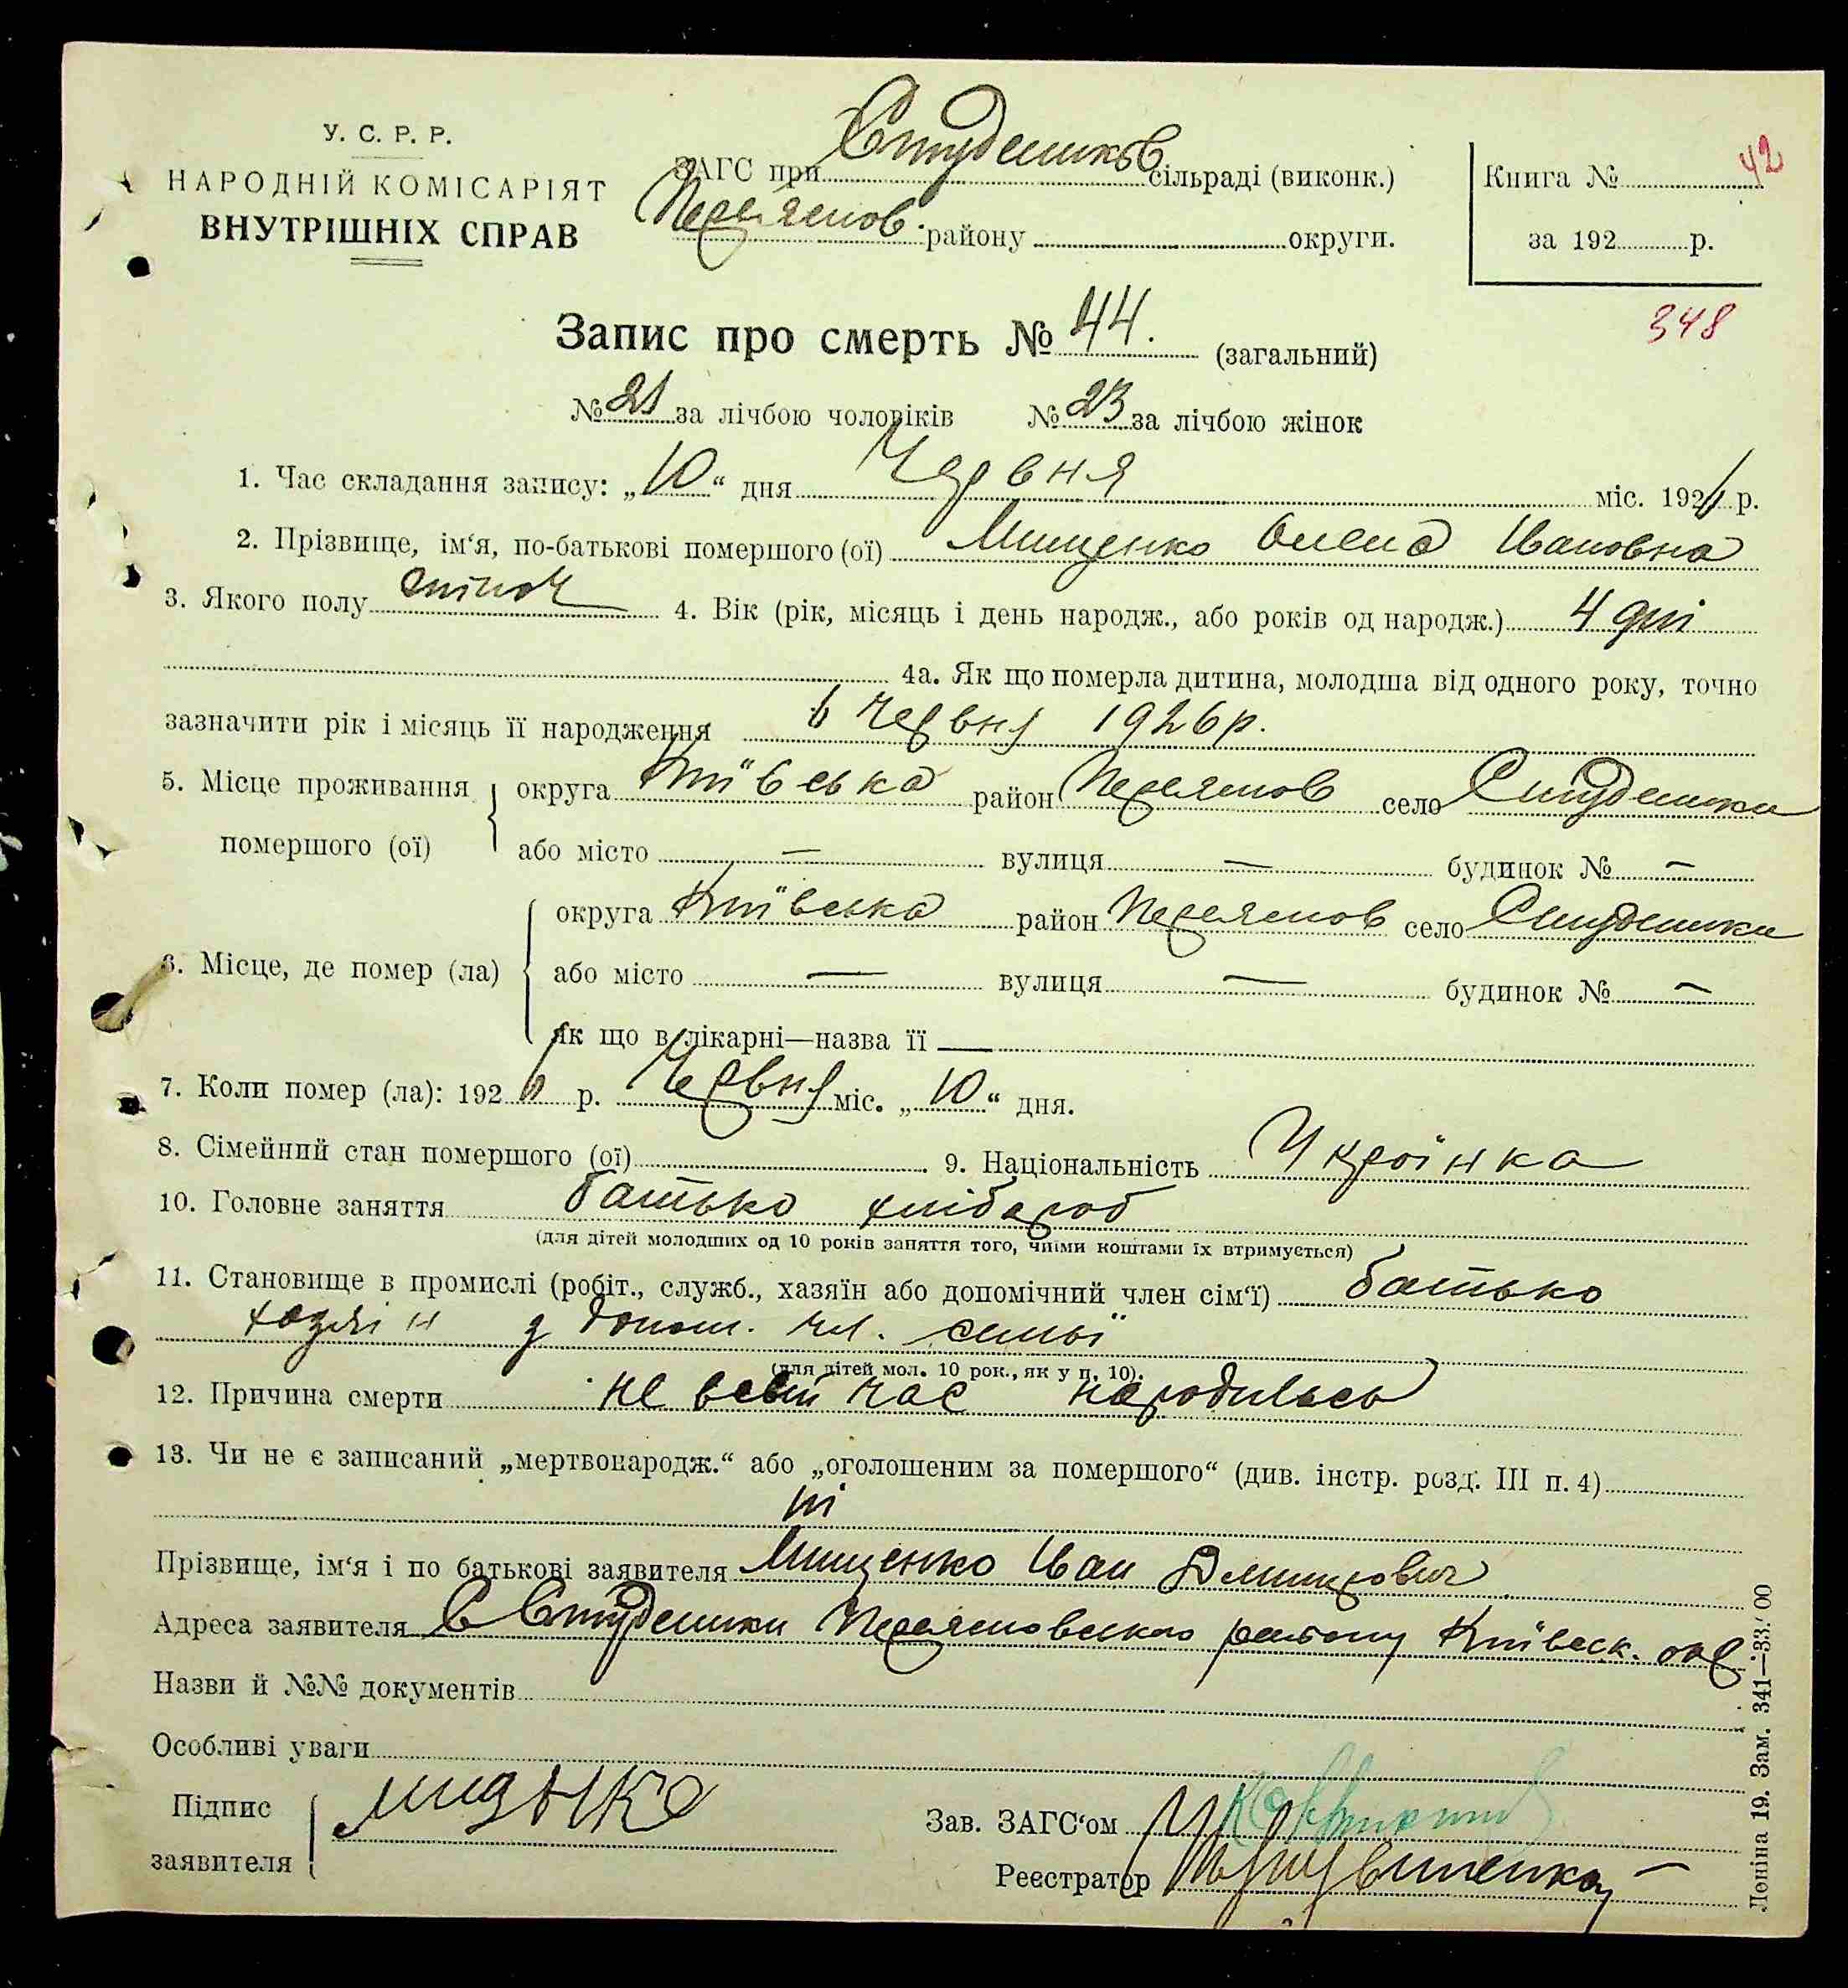 У. С. Р. Р.
НАРОДНІЙ КОМІСАРІЯТ
ВНУТРІШНІХ СПРАВ
ЗАГС при Студеников сільраді (виконк.)
Переяслов. району округи.
Книга № 42
за 192 р.
348
Запис про смерть № 44. (загальний)
№ 21 за лічбою чоловіків № 23 за лічбою жінок
1. Час складання запису: „10“ дня Червня міс. 1926 р.
2. Прізвище, ім‘я, по-батькові помершого (ої) Мищенко Олена Ивановна
3. Якого полу жіноч 4. Вік (рік, місяць і день народж., або років од народж.) 4 дні
4а. Як що померла дитина, молодша від одного року, точно
зазначити рік і місяць її народження 6 Червня 1926 р.
5. Місце проживання помершого (ої) округа Київська район Переяслов село Студеники
або місто — вулиця — будинок № —
6. Місце, де помер (ла) округа Київська район Переяслов село Студеники
або місто — вулиця — будинок № —
Як що в лікарні—назва її —
7. Коли помер (ла): 1926 р. Червня міс. „10“ дня.
8. Сімейний стан помершого (ої) 9. Національність Українка
10. Головне заняття батько хлібароб
(для дітей молодших од 10 років заняття того, чиїми коштами їх втримується)
11. Становище в промислі (робіт., служб., хазяїн або допомічний член сім‘ї) батько
хазяін з допом. чл. семьї
(для дітей мол. 10 рок., як у п. 10).
12. Причина смерти не в свій час народилась
13. Чи не є записаний „мертвонародж.“ або „оголошеним за помершого“ (див. інстр. розд. III п. 4)
ні
Прізвище, ім‘я і по батькові заявителя Мищенко Иван Дмитрович
Адреса заявителя С Студеники Переясловського району Київськ. окр.
Назви й №№ документів
Особливі уваги
Підпис
заявителя
Зав. ЗАГС‘ом
Реєстратор
Леніна 19. Зам. 341—33.